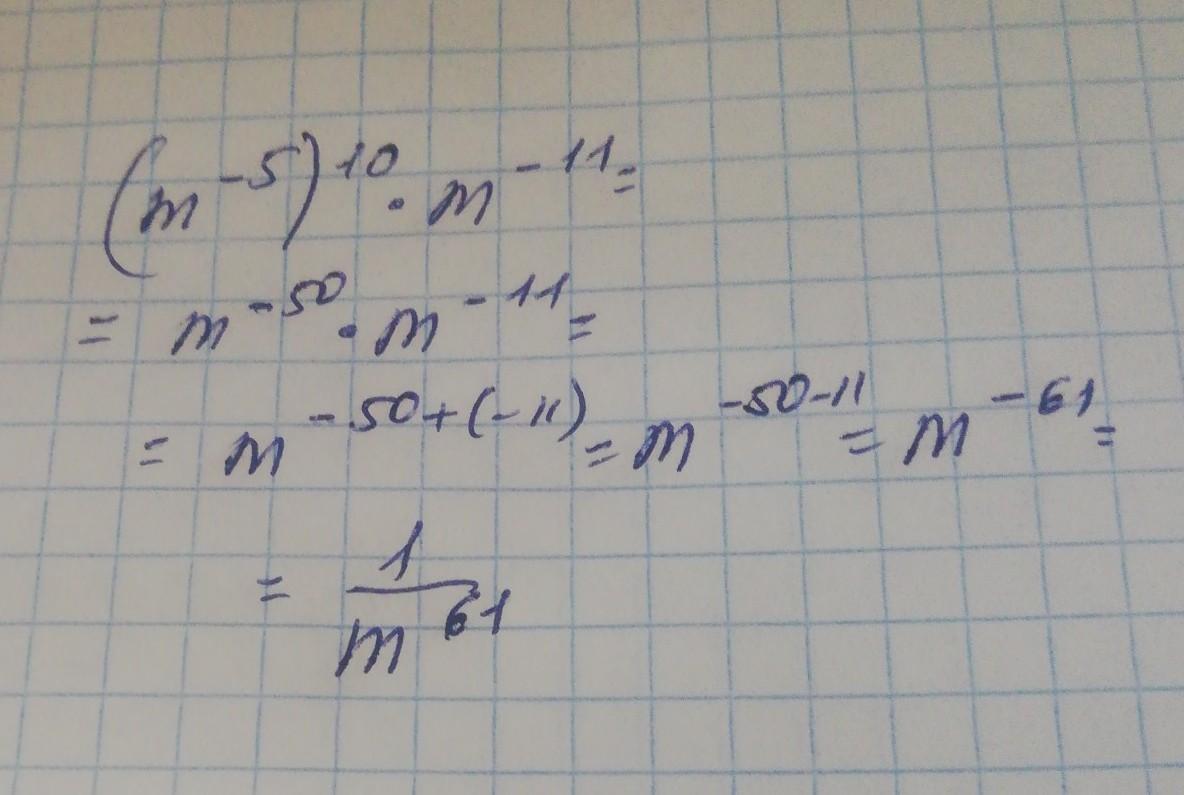 (m⁻⁵)¹⁰ · m⁻¹¹ =
= m⁻⁵⁰ · m⁻¹¹ =
= m⁻⁵⁰⁺⁽⁻¹¹⁾ = m⁻⁵⁰⁻¹¹ = m⁻⁶¹ =
= 1/m⁶¹